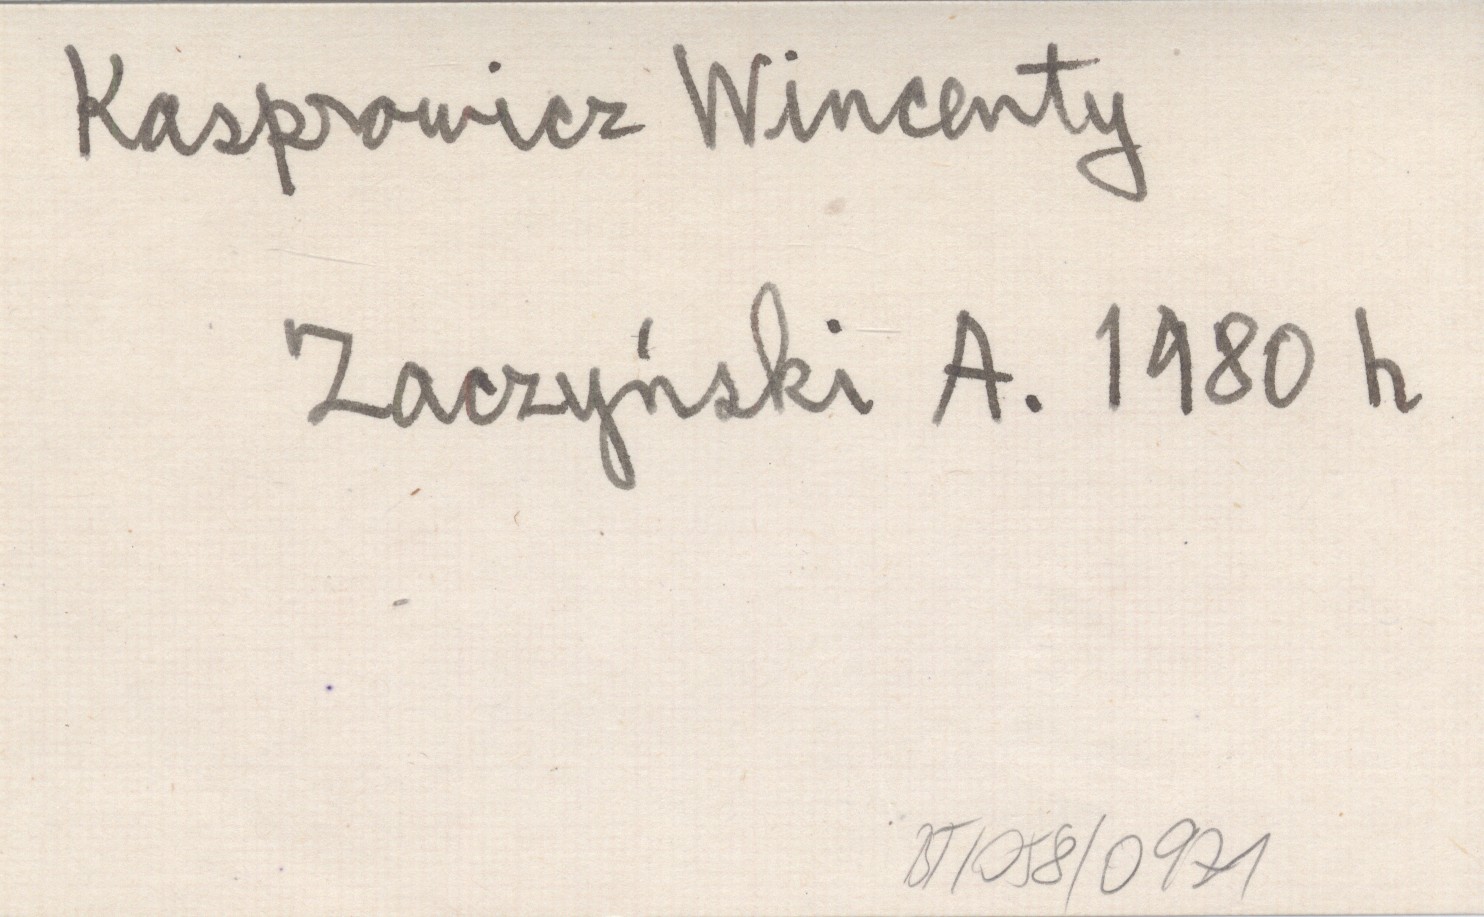 Kasprowicz Wincenty
Zaczyński A. 1980 h
BT/058/0971